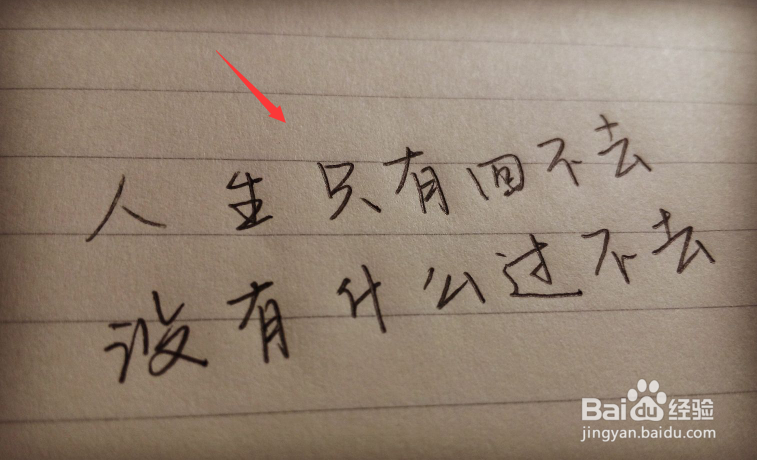 人生只有回不去
没有什么过不去
Bai du 经验
jingyan.baidu.com